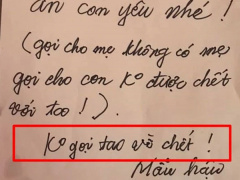 ăn con yêu nhé !
(gọi cho mẹ không có mẹ
gọi cho con K° được chết
với tao !).
K° gọi tao vỡ chết !
Mẫu hậu